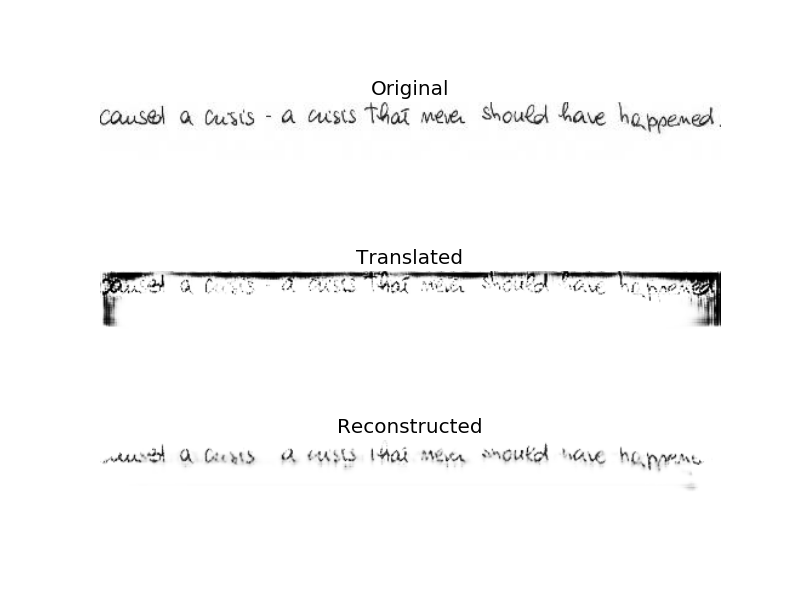 Original
caused a crisis - a crisis that never should have happened.
Translated
caused a crisis - a crisis that never should have happened
Reconstructed
a crisis a crisis that never should have